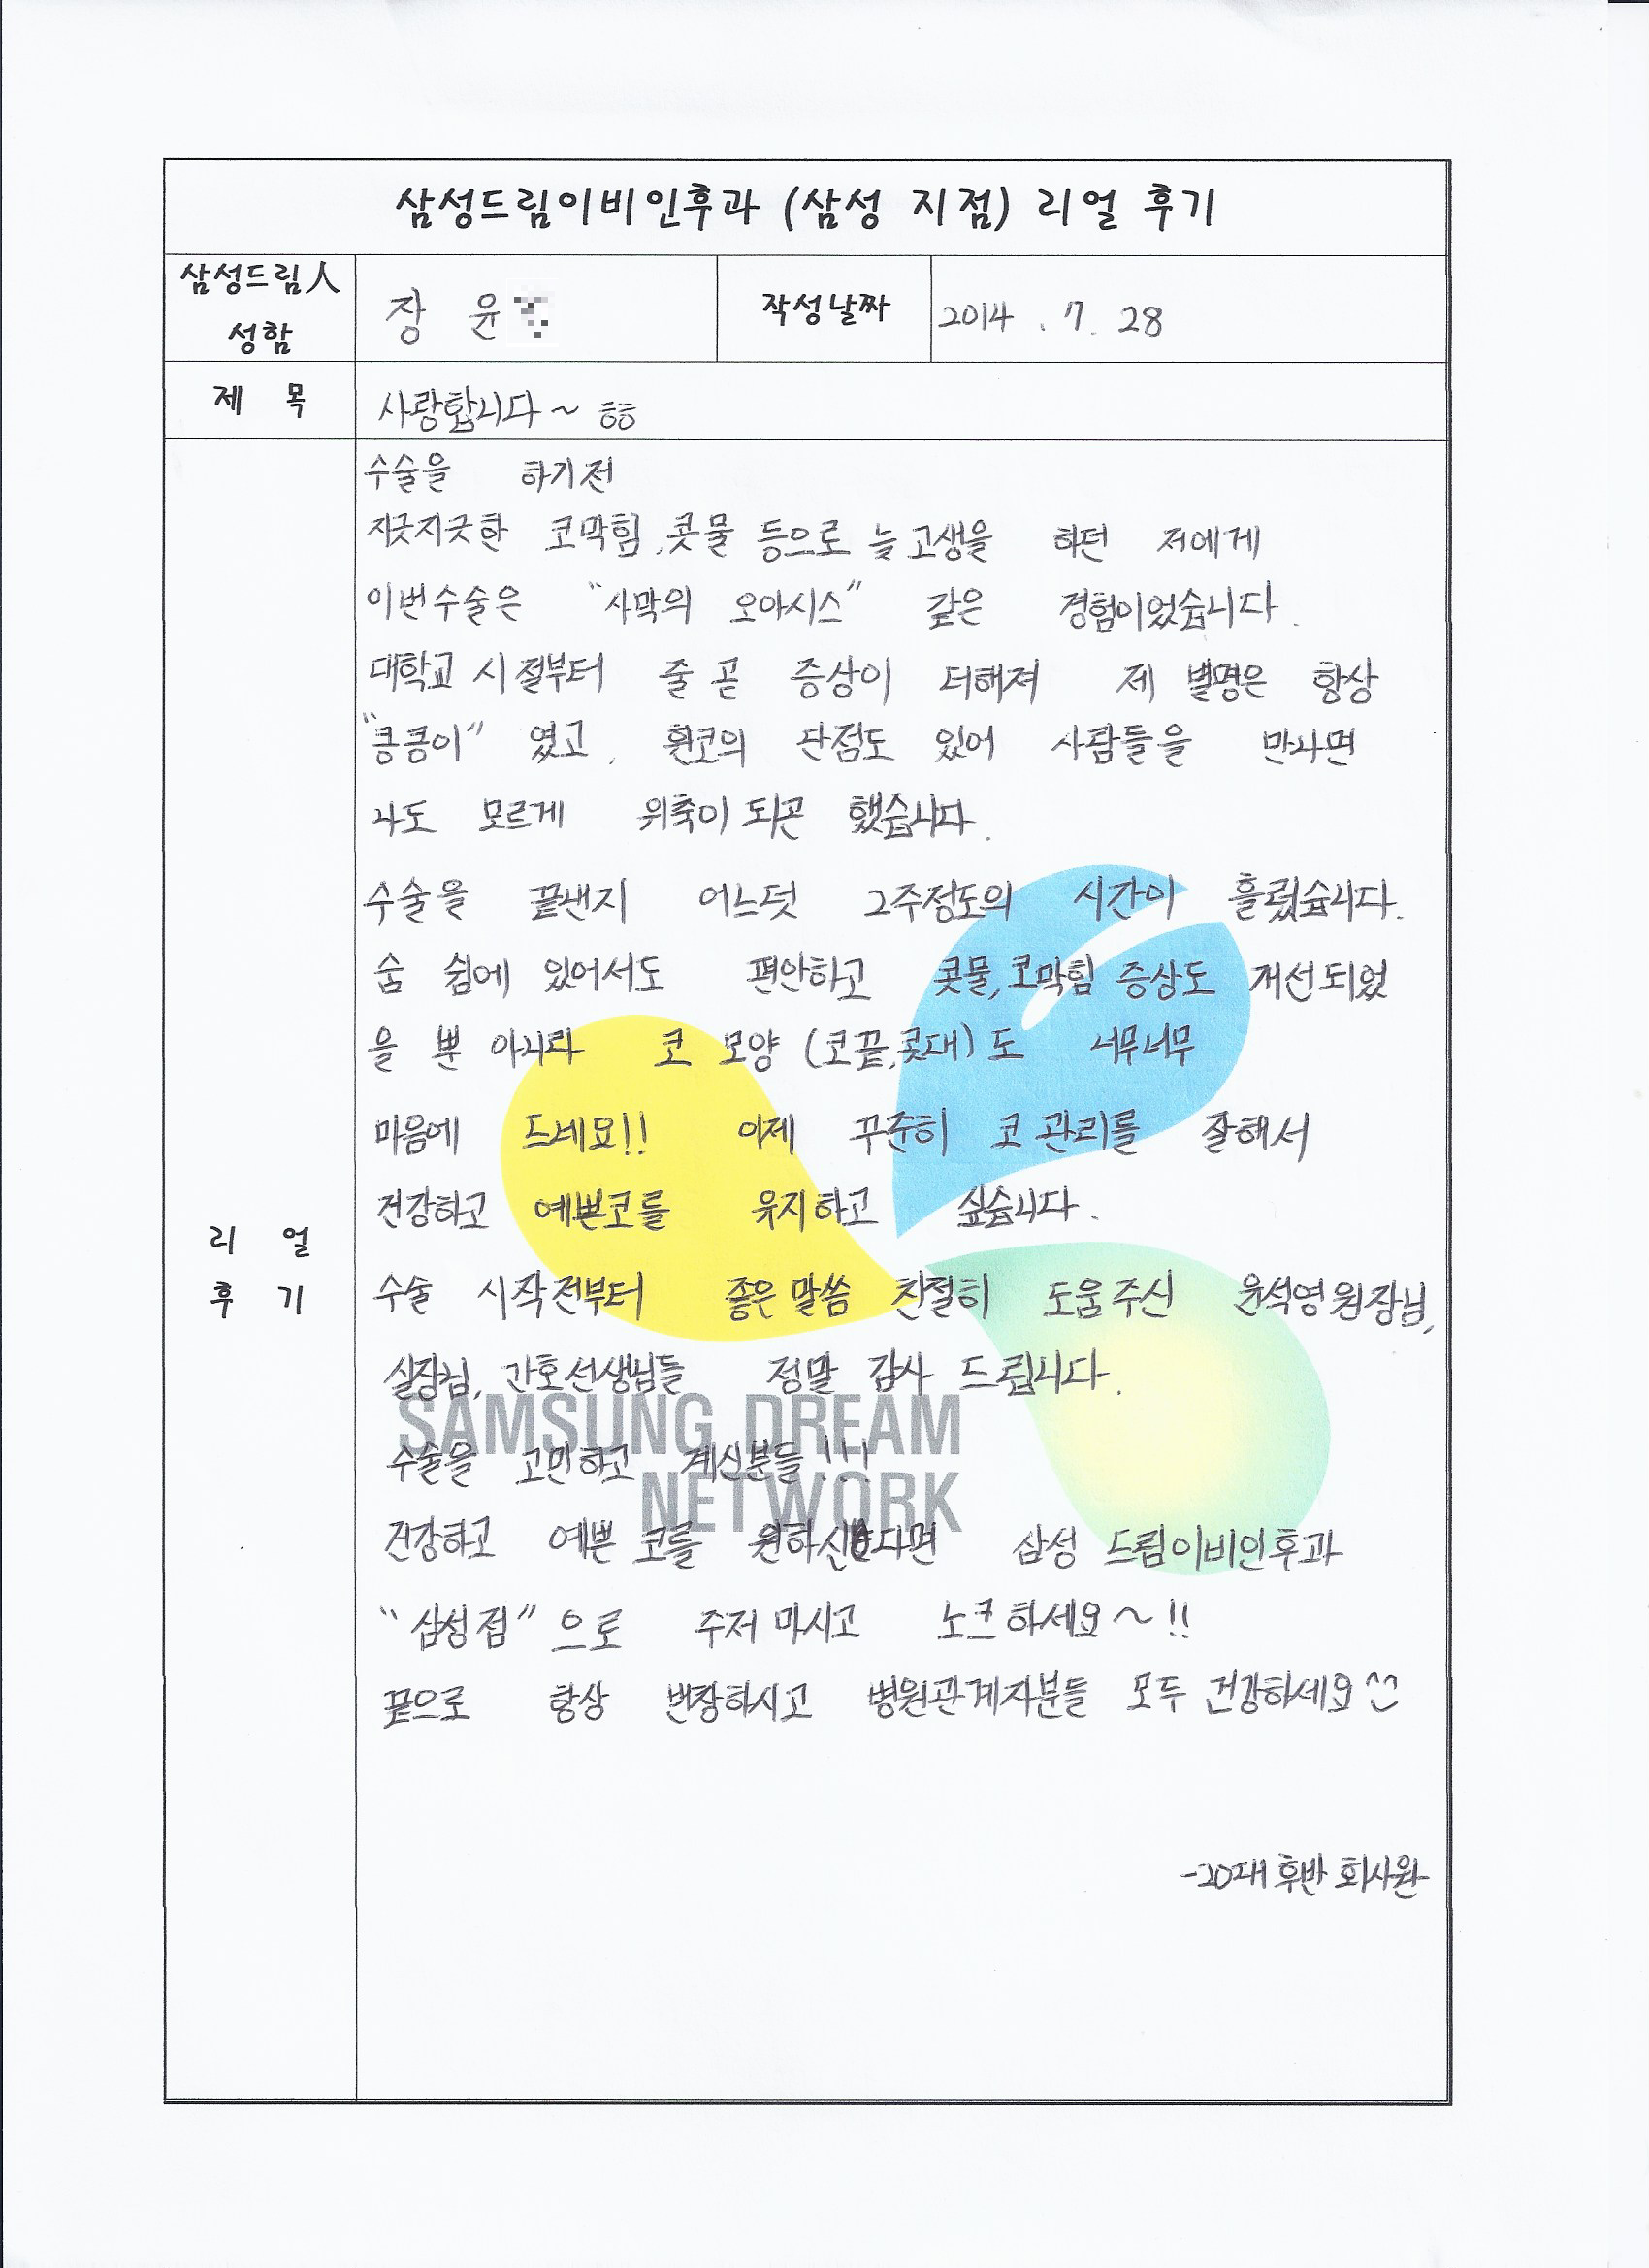 삼성드림이비인후과 (삼성 지점) 리얼 후기
삼성드림人
성함
장 윤
작성날짜
2014 . 7. 28
제 목
사랑합니다~ ㅎㅎ
리 얼
후 기
수술을 하기전
지긋지긋한 코막힘, 콧물 등으로 늘 고생을 하던 저에게
이번수술은 "사막의 오아시스" 같은 경험이었습니다.
대학교 시절부터 줄 곧 증상이 더해져 제 별명은 항상
"킁킁이" 였고, 휜코의 단점도 있어 사람들을 만나면
나도 모르게 위축이 되곤 했습니다.
수술을 끝낸지 어느덧 2주정도의 시간이 흘렀습니다.
숨 쉼에 있어서도 편안하고 콧물, 코막힘 증상도 개선되었
을 뿐 아니라 코 모양 (코끝,콧대)도 너무너무
마음에 드네요!! 이제 꾸준히 코 관리를 잘해서
건강하고 예쁜코를 유지하고 싶습니다.
수술 시작전부터 좋은 말씀 친절히 도움주신 윤석영원장님,
실장님, 간호선생님들 정말 감사 드립니다.
SAMSUNG DREAM
수술을 고민하고 계신분들!!!
NETWORK
건강하고 예쁜 코를 원하신다면 삼성 드림이비인후과
"삼성점"으로 주저 마시고 노크하세요~!!
끝으로 항상 번창하시고 병원관계자분들 모두 건강하세요^^
-20대 후반 회사원-